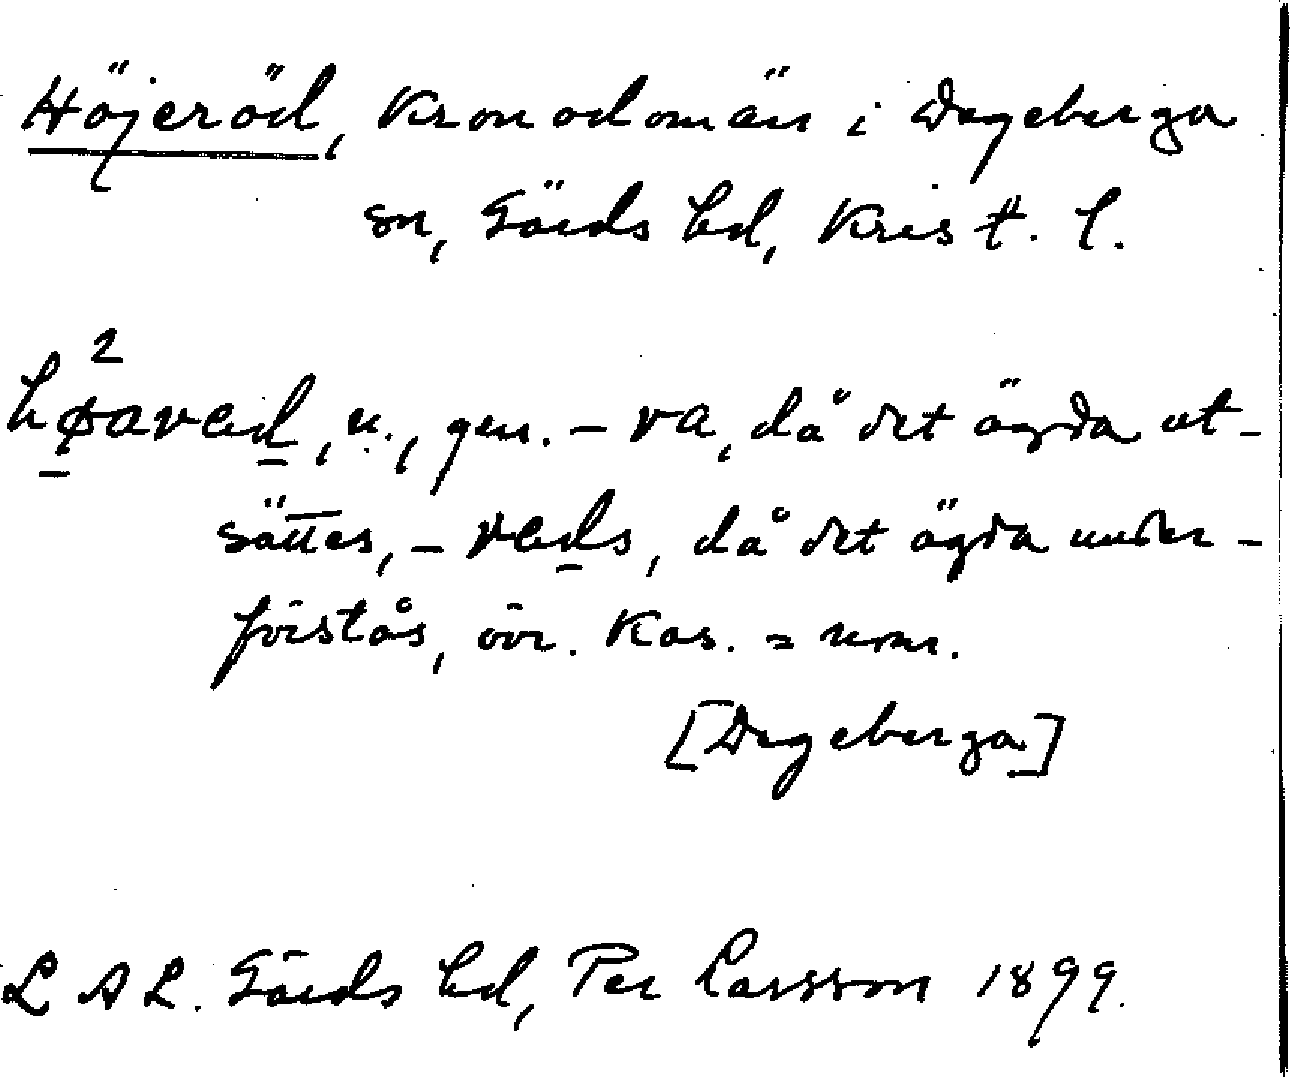 Höjeröd, Kronodomän i Degeberga
sn, Gärds hd, Krist. l.
hø²aved, n., gen. – va, då det ägda ut-
sättes, – veds, då det ägda under-
förstås, övr. Kas. = nom.
[Degeberga]
L A L. Gärds hd, Per Larsson 1899.